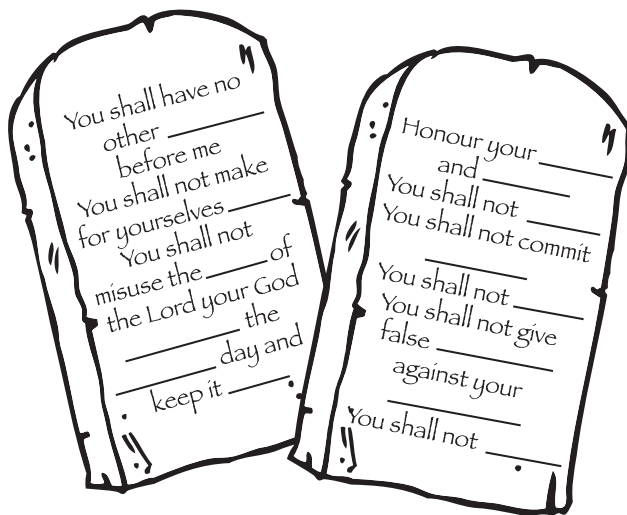 You shall have no
other ________
before me
You shall not make
for yourselves ________
You shall not
misuse the ________ of
the Lord your God
________ the
________ day and
keep it ________
Honour your ________
and ________
You shall not ________
You shall not commit
________
You shall not ________
You shall not give
false ________
against your
________
You shall not ________